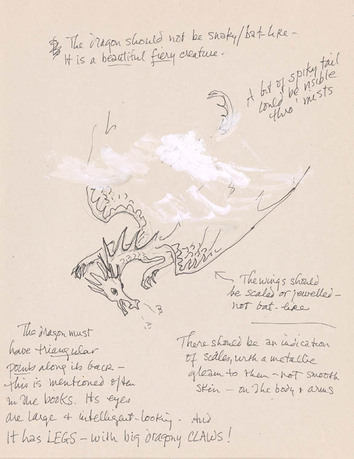 The dragon should not be snaky/bat-like -
It is a beautiful fiery creature.
A bit of spiky tail
could be visible
thro' mists
The wings should
be scaled or jewelled -
not bat-like
The dragon must
have triangular
points along its back -
this is mentioned often
in the books. Its eyes
are large & intelligent-looking. And
It has LEGS - with big dragony CLAWS!
There should be an indication
of scales, with a metallic
gleam to them - not smooth
skin - on the body & arms